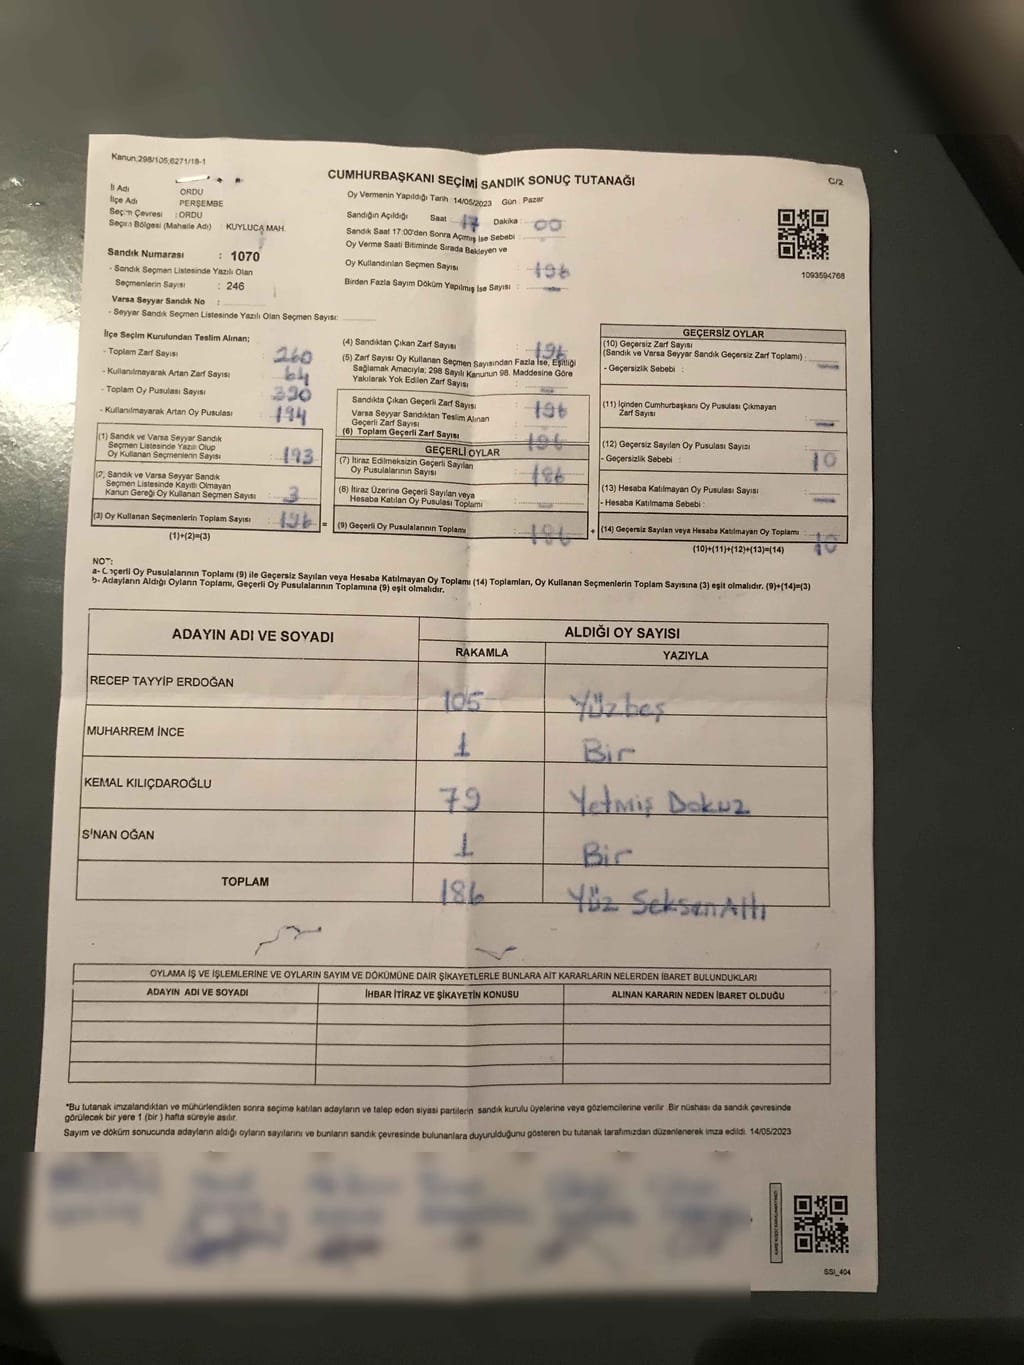 Kanun;298/105;6271/18-1
CUMHURBAŞKANI SEÇİMİ SANDIK SONUÇ TUTANAĞI
C/2
İl Adı ORDU
İlçe Adı PERŞEMBE
Seçim Çevresi : ORDU
Seçim Bölgesi (Mahalle Adı) : KUYLUCA MAH.
Oy Vermenin Yapıldığı Tarih :14/05/2023 Gün : Pazar
Sandığın Açıldığı Saat 17 Dakika : 00
Sandık Saat 17:00'den Sonra Açımış İse Sebebi :
Oy Verme Saati Bitiminde Sırada Bekleyen ve
Oy Kullandırılan Seçmen Sayısı : 196
Birden Fazla Sayım Döküm Yapılmış İse Sayısı :
1093594768
Sandık Numarası : 1070
- Sandık Seçmen Listesinde Yazılı Olan
Seçmenlerin Sayısı : 246
Varsa Seyyar Sandık No :
- Seyyar Sandık Seçmen Listesinde Yazılı Olan Seçmen Sayısı:
İlçe Seçim Kurulundan Teslim Alınan;
- Toplam Zarf Sayısı : 260
- Kullanılmayarak Artan Zarf Sayısı : 64
- Toplam Oy Pusulası Sayısı : 390
- Kullanılmayarak Artan Oy Pusulası : 194
(1) Sandık ve Varsa Seyyar Sandık
Seçmen Listesinde Yazılı Olup
Oy Kullanan Seçmenlerin Sayısı : 193
(2) Sandık ve Varsa Seyyar Sandık
Seçmen Listesinde Kayıtlı Olmayan
Kanun Gereği Oy Kullanan Seçmen Sayısı : 3
(3) Oy Kullanan Seçmenlerin Toplam Sayısı : 196 =
(1)+(2)=(3)
(4) Sandıktan Çıkan Zarf Sayısı : 196
(5) Zarf Sayısı Oy Kullanan Seçmen Sayısından Fazla İse, Eşitliği
Sağlamak Amacıyla; 298 Sayılı Kanunun 98. Maddesine Göre
Yakılarak Yok Edilen Zarf Sayısı :
Sandıkta Çıkan Geçerli Zarf Sayısı : 196
Varsa Seyyar Sandıktan Teslim Alınan
Geçerli Zarf Sayısı :
(6) Toplam Geçerli Zarf Sayısı : 196
GEÇERLİ OYLAR
(7) İtiraz Edilmeksizin Geçerli Sayılan
Oy Pusulalarının Sayısı : 186
(8) İtiraz Üzerine Geçerli Sayılan veya
Hesaba Katılan Oy Pusulası Toplamı :
(9) Geçerli Oy Pusulalarının Toplamı : 186 +
GEÇERSİZ OYLAR
(10) Geçersiz Zarf Sayısı
(Sandık ve Varsa Seyyar Sandık Geçersiz Zarf Toplamı) :
- Geçersizlik Sebebi :
(11) İçinden Cumhurbaşkanı Oy Pusulası Çıkmayan
Zarf Sayısı :
(12) Geçersiz Sayılan Oy Pusulası Sayısı
- Geçersizlik Sebebi : 10
(13) Hesaba Katılmayan Oy Pusulası Sayısı :
- Hesaba Katılmama Sebebi :
(14) Geçersiz Sayılan veya Hesaba Katılmayan Oy Toplamı : 10
(10)+(11)+(12)+(13)=(14)
NOT:
a- Geçerli Oy Pusulalarının Toplamı (9) ile Geçersiz Sayılan veya Hesaba Katılmayan Oy Toplamı (14) Toplamları, Oy Kullanan Seçmenlerin Toplam Sayısına (3) eşit olmalıdır. (9)+(14)=(3)
b- Adayların Aldığı Oyların Toplamı, Geçerli Oy Pusulalarının Toplamına (9) eşit olmalıdır.
ADAYIN ADI VE SOYADI ALDIĞI OY SAYISI
RAKAMLA YAZIYLA
RECEP TAYYİP ERDOĞAN 105 Yüzbeş
MUHARREM İNCE 1 Bir
KEMAL KILIÇDAROĞLU 79 Yetmiş Dokuz
SİNAN OĞAN 1 Bir
TOPLAM 186 Yüz Seksen Altı
OYLAMA İŞ VE İŞLEMLERİNE VE OYLARIN SAYIM VE DÖKÜMÜNE DAİR ŞİKAYETLERLE BUNLARA AİT KARARLARIN NELERDEN İBARET BULUNDUKLARI
ADAYIN ADI VE SOYADI İHBAR İTİRAZ VE ŞİKAYETİN KONUSU ALINAN KARARIN NEDEN İBARET OLDUĞU
*Bu tutanak imzalandıktan ve mühürlendikten sonra seçime katılan adayların ve talep eden siyasi partilerin sandık kurulu üyelerine veya gözlemcilerine verilir. Bir nüshası da sandık çevresinde
görülecek bir yere 1 (bir ) hafta süreyle asılır.
Sayım ve döküm sonucunda adayların aldığı oyların sayılarını ve bunların sandık çevresinde bulunanlara duyurulduğunu gösteren bu tutanak tarafımızdan düzenlenerek imza edildi. 14/05/2023
SSI_404